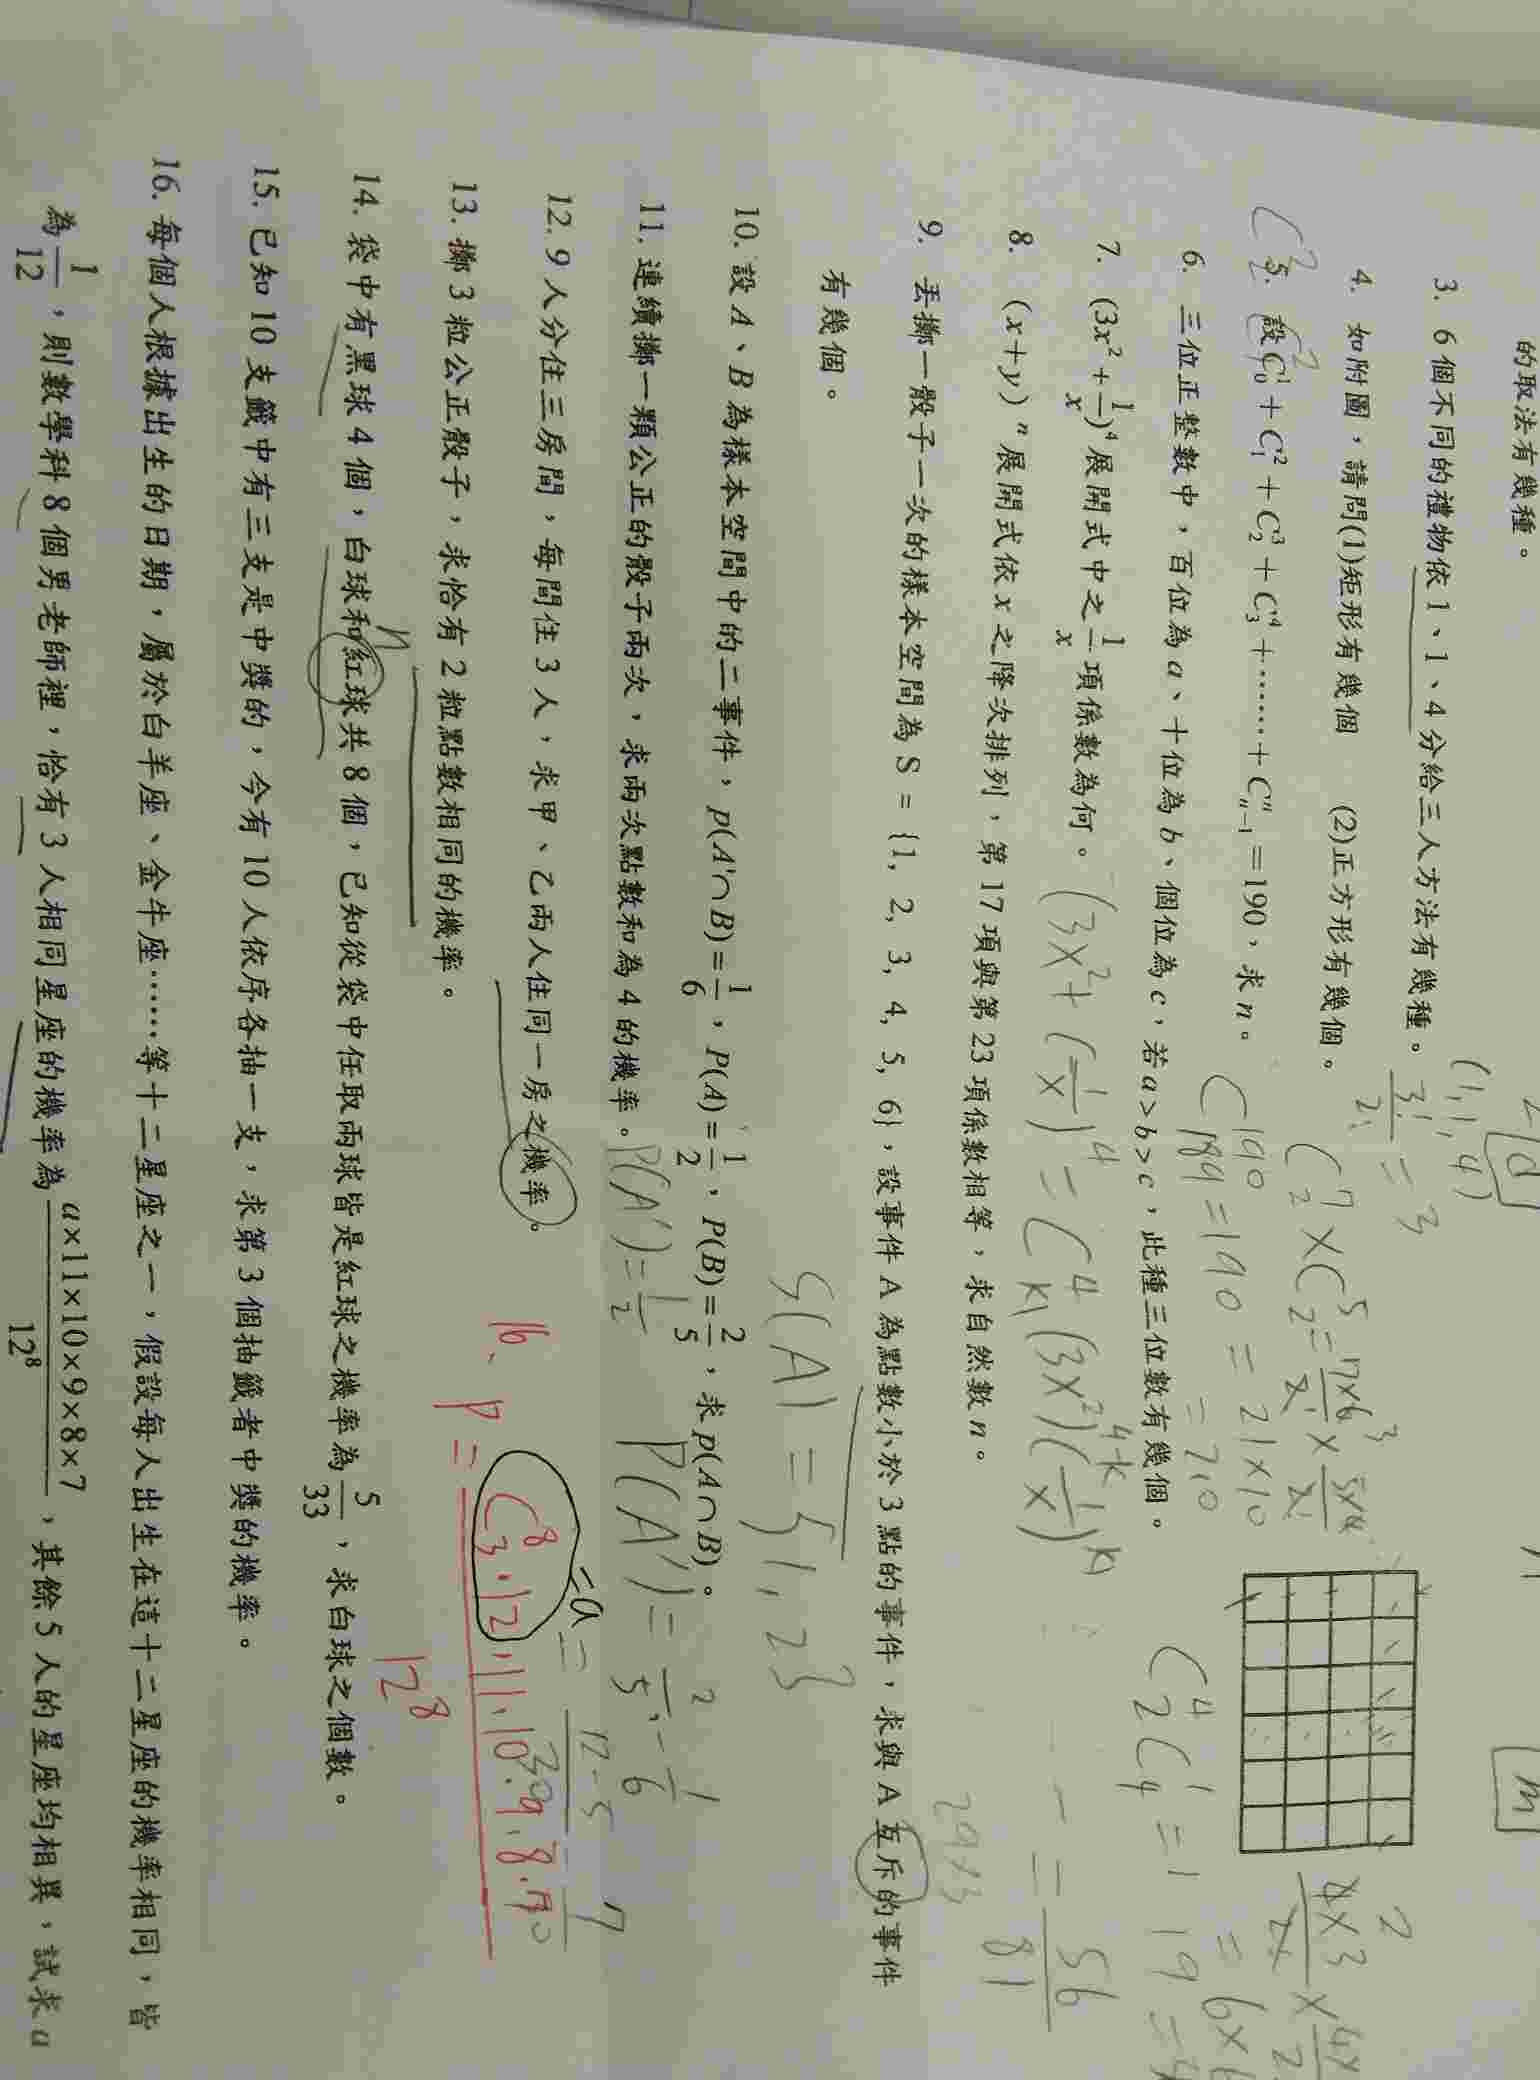 的取法有幾種。
3. 6個不同的禮物依1、1、4分給三人方法有幾種。
(1,1,4)
3!/2! = 3
4. 如附圖，請問(1)矩形有幾個 (2)正方形有幾個。
C^7_2 × C^5_2 = 7×6/2 × 5×4/2
5. 設C^1_0+C^2_1+C^3_2+C^4_3+……+C^n_{n-1}=190，求n。
C^190_189 = 190 = 21×10
= 210
6. 三位正整數中，百位為a、十位為b、個位為c，若a>b>c，此種三位數有幾個。
7. (3x²+1/x)⁴展開式中之1/x項係數為何。
(3x²+(1/x)⁴ = C^4_k (3x²)^{4-k} (1/x)^k
8. (x+y)ⁿ展開式依x之降次排列，第17項與第23項係數相等，求自然數n。
= 56/81
9. 丟擲一骰子一次的樣本空間為S={1, 2, 3, 4, 5, 6}，設事件A為點數小於3點的事件，求與A互斥的事件
有幾個。
S(A) = {1, 2}
10. 設A、B為樣本空間中的二事件，p(A'∩B)=1/6，P(A)=1/2，P(B)=2/5，求p(A∩B)。
P(A')=1/2
P(A')= 2/5 - 1/6
11. 連續擲一顆公正的骰子兩次，求兩次點數和為4的機率。
12. 9人分住三房間，每間住3人，求甲、乙兩人住同一房之機率。
13. 擲3粒公正骰子，求恰有2粒點數相同的機率。
16. P = C^8_3·12·11·10·9·8·7
12⁸
=a
14. 袋中有黑球4個，白球和紅球共8個，已知從袋中任取兩球皆是紅球之機率為5/33，求白球之個數。
n
15. 已知10支籤中有三支是中獎的，今有10人依序各抽一支，求第3個抽籤者中獎的機率。
16. 每個人根據出生的日期，屬於白羊座、金牛座……等十二星座之一，假設每人出生在這十二星座的機率相同，皆
為1/12，則數學科8個男老師裡，恰有3人相同星座的機率為a×11×10×9×8×7/12⁸，其餘5人的星座均相異，試求a